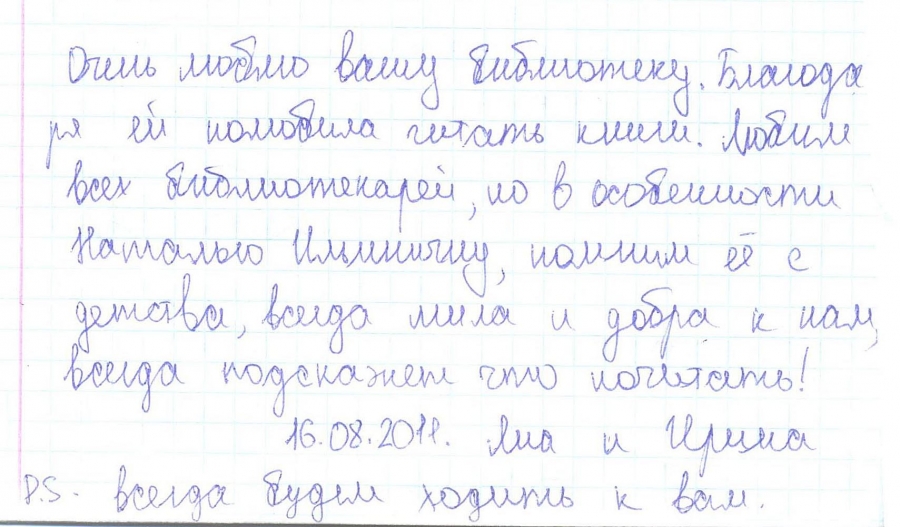 Очень люблю вашу библиотеку. Благода
ря ей полюбила читать книги. Любим
всех библиотекарей, но в особенности
Наталью Ильиничну, помним её с
детства, всегда мила и добра к нам,
всегда подскажет что почитать!
16.08.2011. Яна и Ирина
P.S. всегда будем ходить к вам.